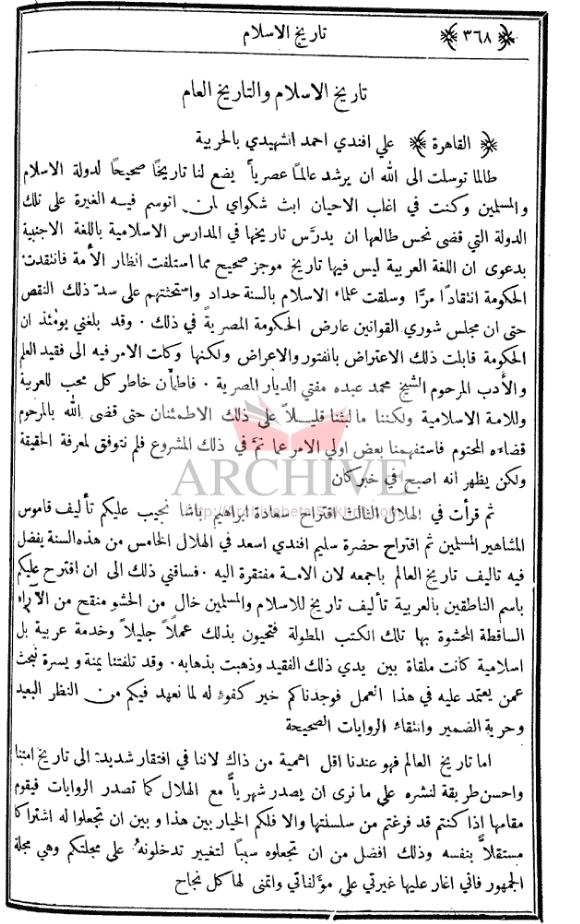 ٣٦٨
تاريخ الاسلام
تاريخ الاسلام والتاريخ العام
﴿ القاهرة ﴾ علي افندي احمد الشهيدي بالحربية
طالما توسلت الى الله ان يرشد عالماً عصرياً يضع لنا تاريخاً صحيحاً لدولة الاسلام
والمسلمين وكنت في اغلب الاحيان ابث شكواي لمن اتوسم فيه الغيرة على تلك
الدولة التي قضى نحس طالعها ان يدرَّس تاريخها في المدارس الاسلامية باللغة الاجنبية
بدعوى ان اللغة العربية ليس فيها تاريخ موجز صحيح مما استلفت انظار الأمة فانتقدت
الحكومة انتقاداً مرًّا وسلقت علماء الاسلام بالسنة حداد واستحثتهم على سدّ ذلك النقص
حتى ان مجلس شوري القوانين عارض الحكومة المصريةً في ذلك . وقد بلغني يومئذ ان
الحكومة قابلت ذلك الاعتراض بالفتور والاعراض ولكنها وكات الامر فيه الى فقيد العلم
والأدب المرحوم الشيخ محمد عبده مفتي الديار المصرية . فاطمأن خاطر كل محب للعربية
وللامة الاسلامية ولكننا ما لبثنا قليلاً على ذلك الاطمئنان حتى قضى الله بالمرحوم
قضاءه المحتوم فاستفهمنا بعض اولي الامر عما تمَّ في ذلك المشروع فلم نتوفق لمعرفة الحقيقة
ولكن يظهر انه اصبح في خبر كان
ثم قرأت في الهلال الثالث اقتراح سعادة ابراهيم باشا نجيب عليكم تأليف قاموس
المشاهير المسلمين ثم اقتراح حضرة سليم افندي اسعد في الهلال الخامس من هذه السنة يفضل
فيه تاليف تاريخ العالم باجمعه لان الامة مفتقرة اليه . فساقني ذلك الى ان اقترح عليكم
باسم الناطقين بالعربية تأليف تاريخ للاسلام والمسلمين خال من الحشو منقح من الآراء
الساقطة المحشوة بها تلك الكتب المطولة فتحيون بذلك عملاً جليلاً وخدمة عربية بل
اسلامية كانت ملقاة بين يدي ذلك الفقيد وذهبت بذهابه . وقد تلفتنا يمنة و يسرة نبحث
عمن يعتمد عليه في هذا العمل فوجدناكم خير كفوءٍ له لما نعهد فيكم من النظر البعيد
وحرية الضمير وانتقاء الروايات الصحيحة
اما تاريخ العالم فهو عندنا اقل اهمية من ذاك لاننا في افتقار شديد الى تاريخ امتنا
واحسن طريقة لنشره على ما نرى ان يصدر شهرياً مع الهلال كما تصدر الروايات فيقوم
مقامها اذا كنتم قد فرغتم من سلسلتها والا فلكم الخيار بين هذا و بين ان تجعلوا له اشتراكا
مستقلاً بنفسه وذلك افضل من ان تجعلوه سبباً لتغيير تدخلونهُ على مجلتكم وهي مجلة
الجمهور فاني اغار عليها غيرتي على مؤلفاتي واتمنى لها كل نجاح
ARCHIVE